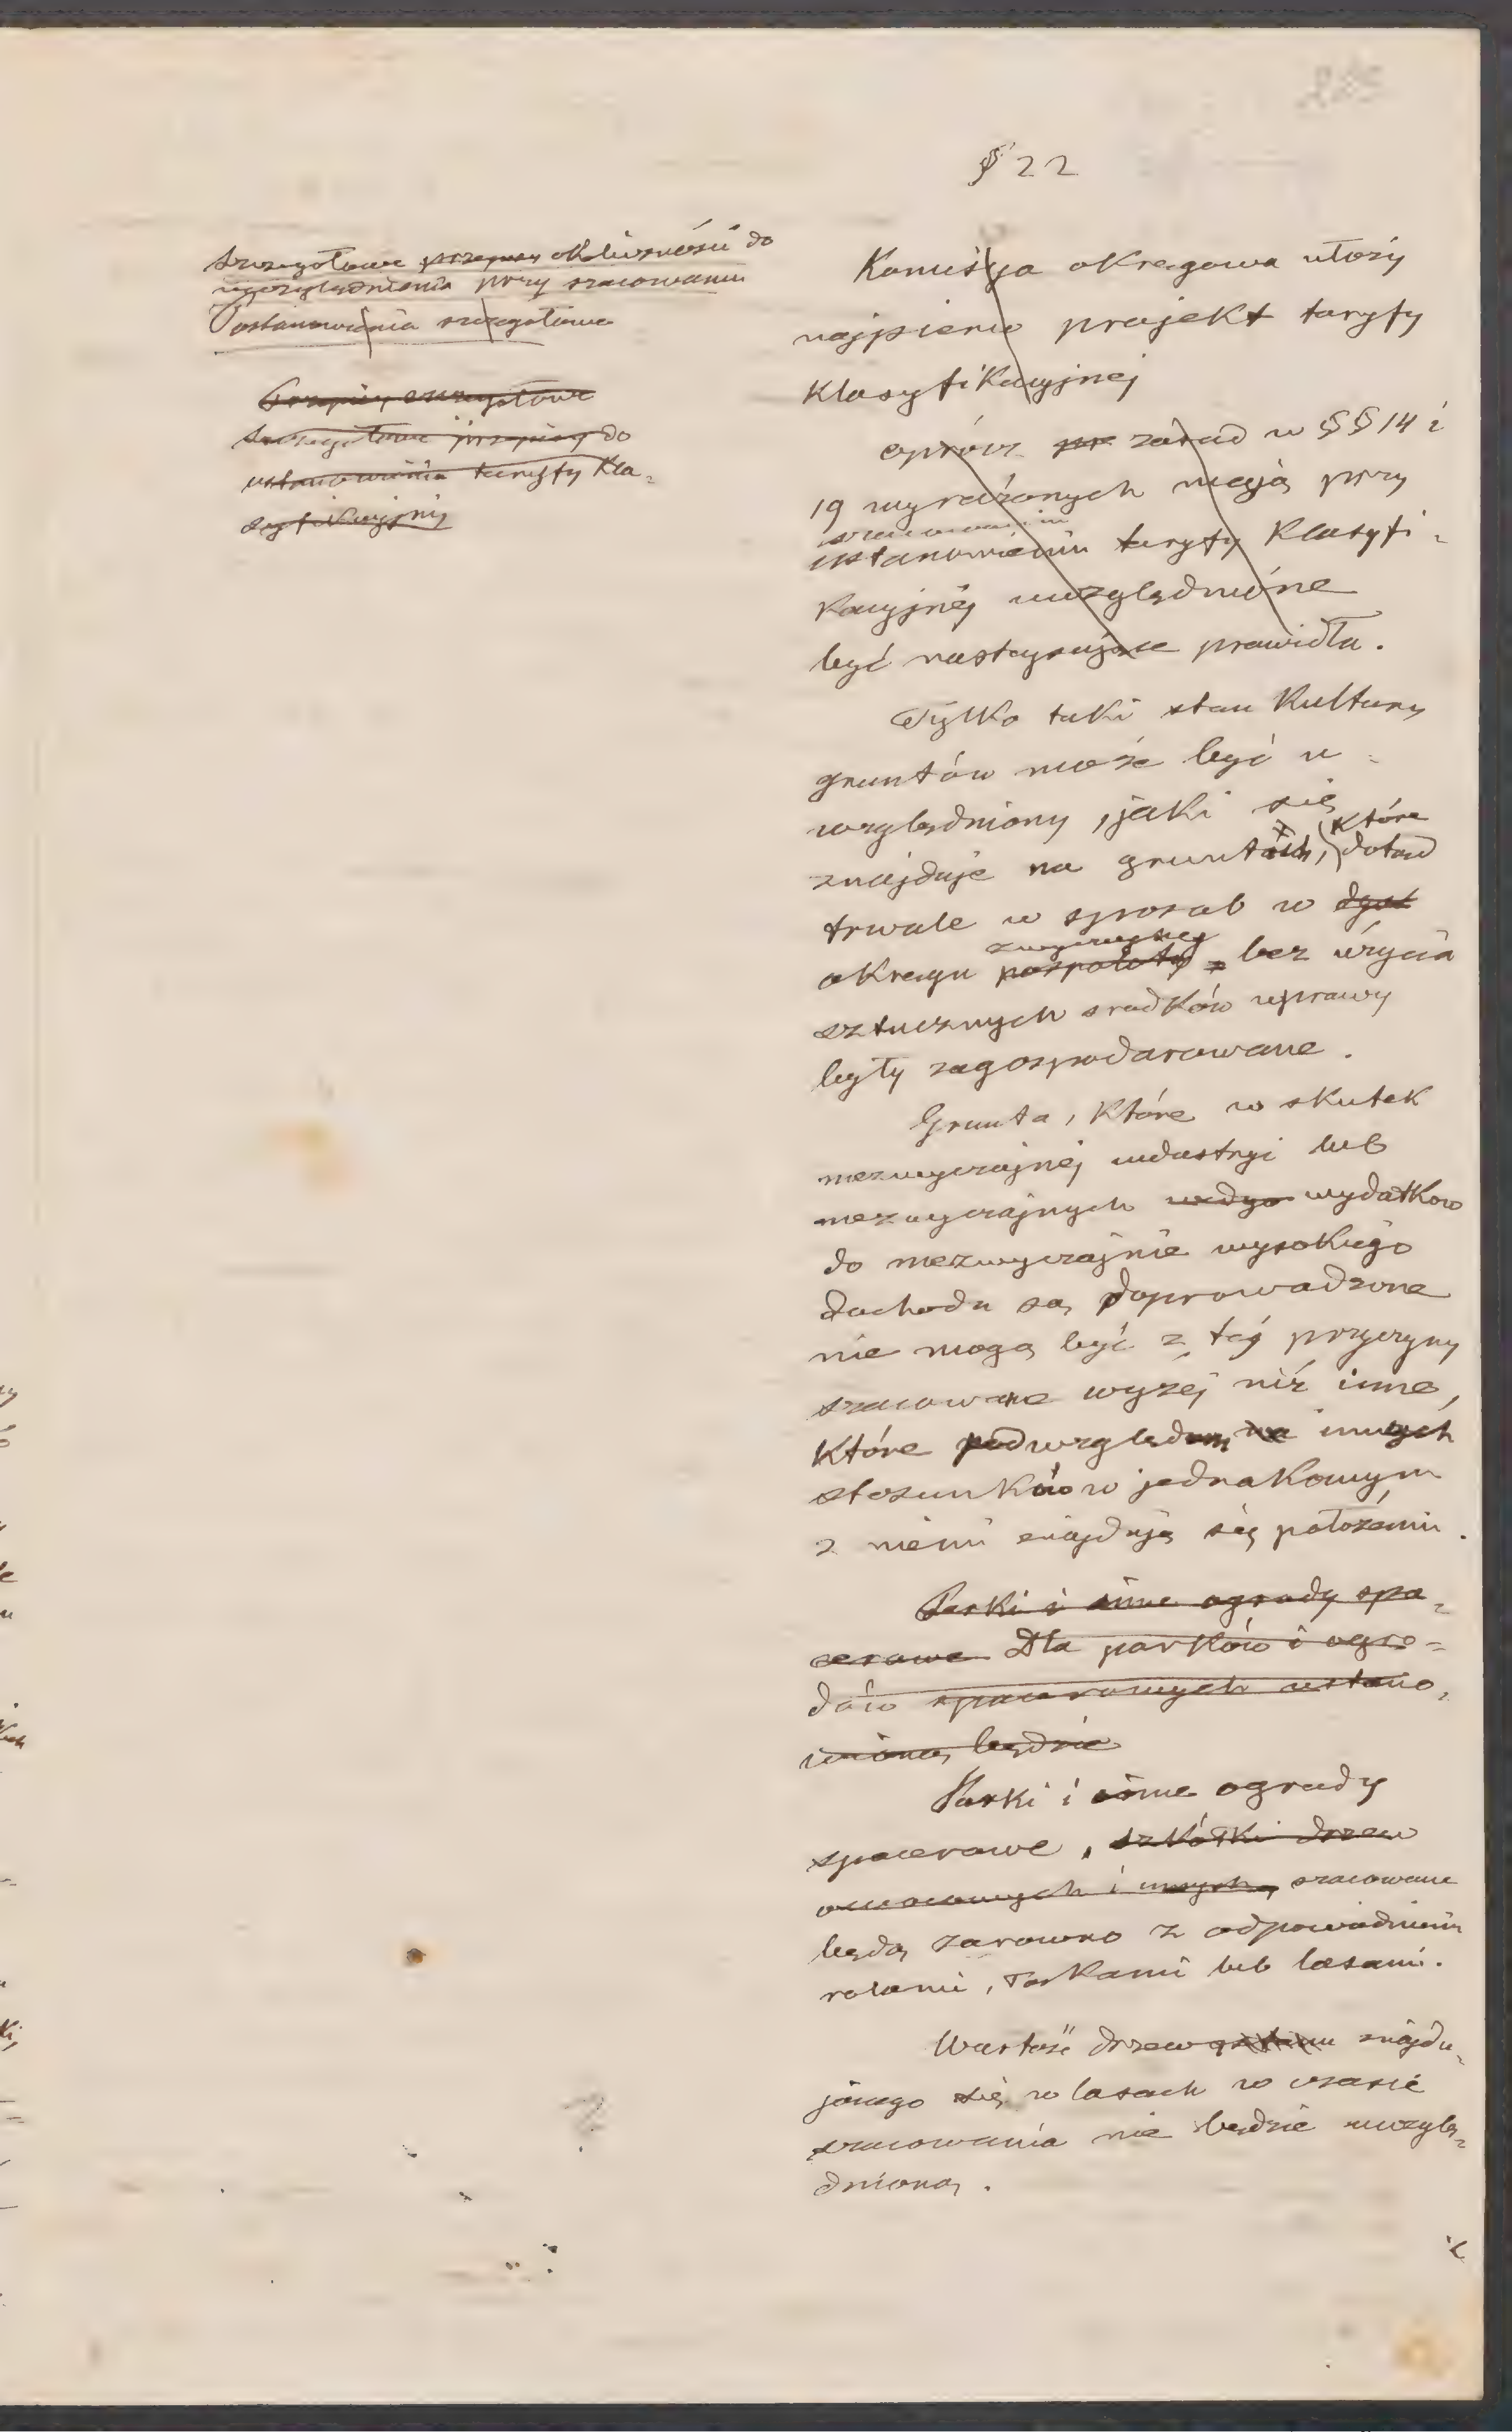 § 22
Szczegółowe przepisy okoliczności do
uwzględnienia przy szacowaniu
Postanowienia szczegółowe
Przepisy szczegółowe
Szczegółowe przepisy do
ustanowienia taryfy kla-
syfikacyjnej
Komisyja okręgowa ułoży
najpierw projekt taryfy
klasyfikacyjnej
oprócz zasad w §§ 14 i
19 wyrażonych mają przy
szacowaniu
ustanowieniu taryfy klasyfi-
kacyjnéj uwzględnione
być następujące prawidła.
Tylko taki stan kultury
gruntów może być u-
względniony, jaki się
znajduje na gruntach, które dotąd
trwale w sposób w
zwyczajney
okręgu pospolity bez użycia
sztucznych srodków uprawy
były zagospodarowane.
Grunta, które w skutek
niezwyczajnéj industryi lub
niezwyczajnych wydatków
do niezwyczajnie wysokiégo
dochodu są doprowadzone
nie mogą być z téj przyczyny
szacowane wyżéj niż inne,
które pod względem innych
stosunków w jednakowym
z niemi znajdują się położeniu.
Parki i inne ogrody spa-
cerowe Dla parków i ogro-
dów spacerowych ustano-
wioną będzie
Parki i inne ogrody
spacerowe, szkółki drzew
owocowych i innych, szacowane
będą zarowno z odpowiedniemi
rolami, łąkami lub lasami.
Wartość drzewostanu znajdu-
jącego się w lasach w czasie
szacowania nie będzie uwzglę-
dnioną.